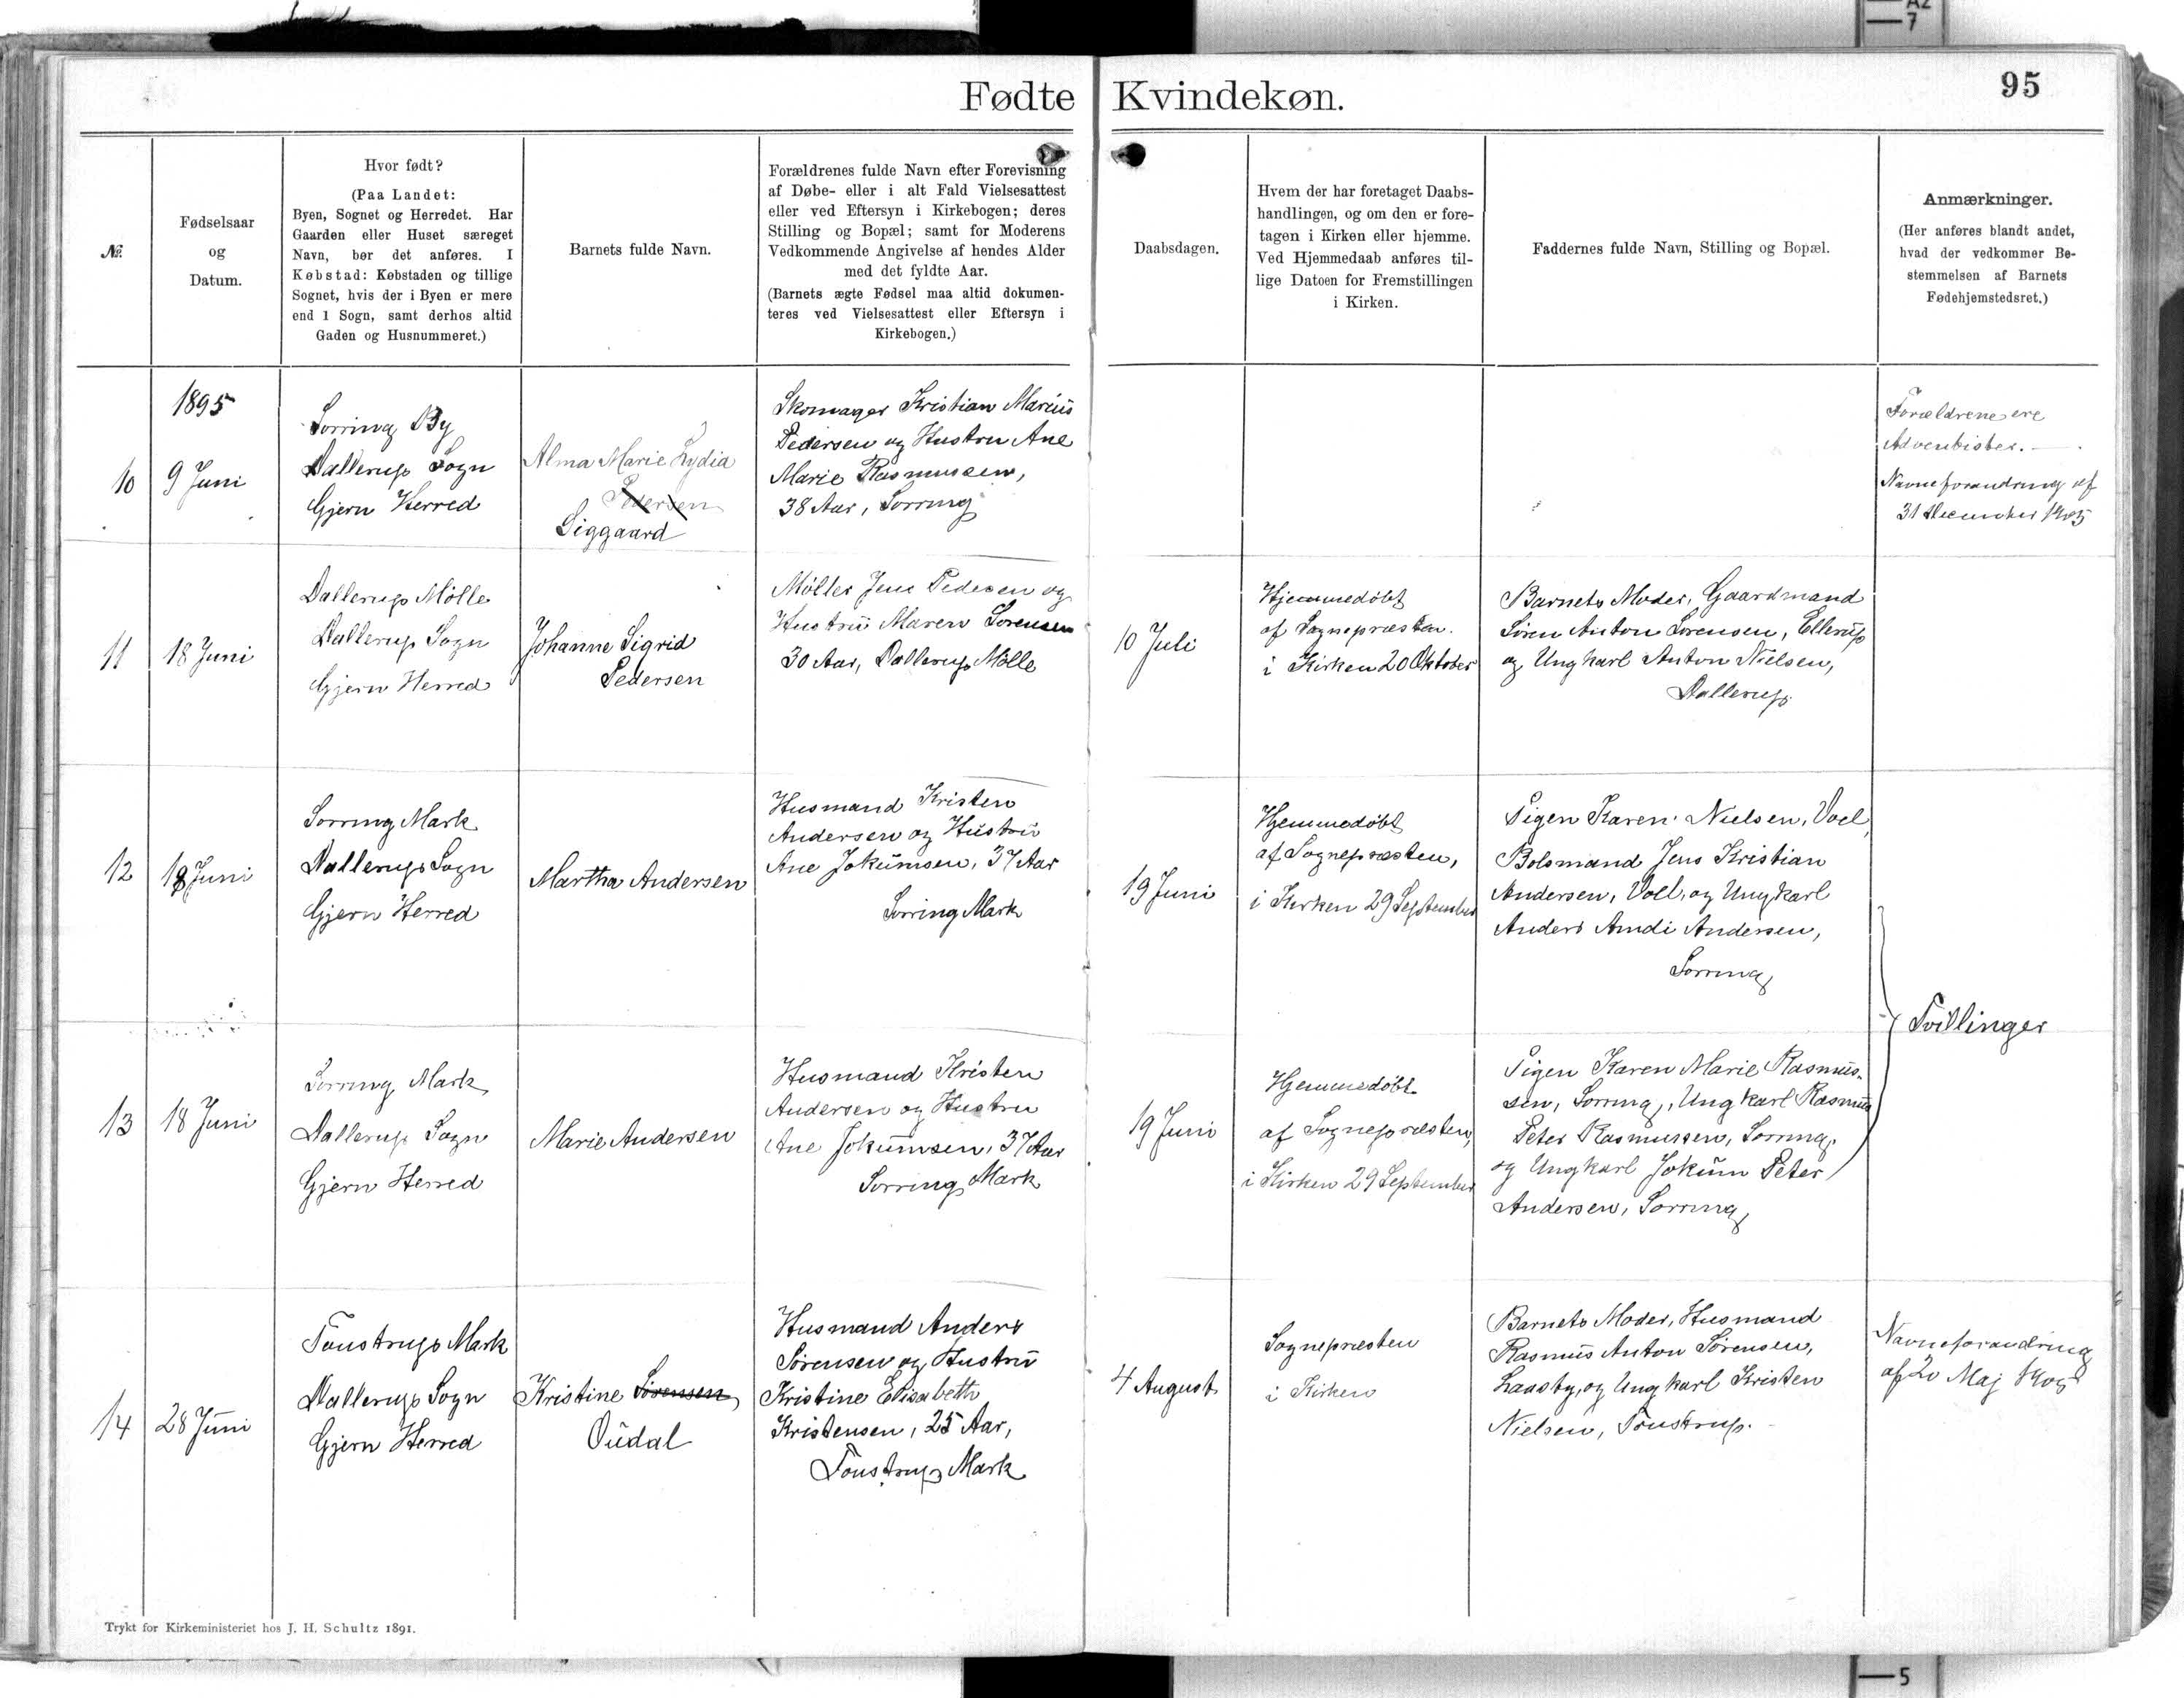 Fødte Kvindekøn.
95
№.
Fødselsaar
og
Datum.
Hvor født?
(Paa Landet:
Byen, Sognet og Herredet. Har
Gaarden eller Huset særeget
Navn, bør det anføres. I
Købstad: Købstaden og tillige
Sognet, hvis der i Byen er mere
end 1 Sogn, samt derhos altid
Gaden og Husnummeret.)
Barnets fulde Navn.
Forældrenes fulde Navn efter Forevisning
af Døbe- eller i alt Fald Vielsesattest
eller ved Eftersyn i Kirkebogen; deres
Stilling og Bopæl; samt for Moderens
Vedkommende Angivelse af hendes Alder
med det fyldte Aar.
(Barnets ægte Fødsel maa altid dokumen-
teres ved Vielsesattest eller Eftersyn i
Kirkebogen.)
Daabsdagen.
Hvem der har foretaget Daabs-
handlingen, og om den er fore-
tagen i Kirken eller hjemme.
Ved Hjemmedaab anføres til-
lige Datoen for Fremstillingen
i Kirken.
Faddernes fulde Navn, Stilling og Bopæl.
Anmærkninger.
(Her anføres blandt andet,
hvad der vedkommer Be-
stemmelsen af Barnets
Fødehjemstedsret.)
10
1895
9 Juni
Sorring By
Dallerup Sogn
Gjern Herred
Alma Marie Lydia
Pedersen
Siggaard
Skomager Kristian Marius
Pedersen og Hustru Ane
Marie Rasmussen,
38 Aar, Sorring
Forældrene ere
Adventister.
Navneforandring af
31 December 1905
11
18 Juni
Dallerup Mølle
Dallerup Sogn
Gjern Herred
Johanne Sigrid
Pedersen
Møller Jens Pedersen og
Hustru Maren Sørensen
30 Aar, Dallerup Mølle
10 Juli
Hjemmedøbt
af Sognepræsten.
i Kirken 20 Oktober
Barnets Moder, Gaardmand
Søren Anton Sørensen, Ellerup
og Ungkarl Anton Nielsen,
Dallerup
12
18 Juni
Sorring Mark
Dallerup Sogn
Gjern Herred
Martha Andersen
Husmand Kristen
Andersen og Hustru
Ane Jokumsen, 37 Aar
Sorring Mark
19 Juni
Hjemmedøbt
af Sognepræsten,
i Kirken 29 September
Pigen Karen Nielsen, Voel,
Bolsmand Jens Kristian
Andersen, Voel, og Ungkarl
Anders Amdi Andersen,
Sorring
Tvillinger
13
18 Juni
Sorring Mark
Dallerup Sogn
Gjern Herred
Marie Andersen
Husmand Kristen
Andersen og Hustru
Ane Jokumsen, 37 Aar
Sorring Mark
19 Juni
Hjemmedøbt
af Sognepræsten,
i Kirken 29 September
Pigen Karen Marie Rasmus-
sen, Sorring, Ungkarl Rasmus
Peter Rasmussen, Sorring,
og Ungkarl Jokum Peter
Andersen, Sorring
14
28 Juni
Toustrup Mark
Dallerup Sogn
Gjern Herred
Kristine Sørensen
Oudal
Husmand Anders
Sørensen og Hustru
Kristine Elisabeth
Kristensen, 25 Aar,
Toustrup Mark
4 August
Sognepræsten
i Kirken
Barnets Moder, Husmand
Rasmus Anton Sørensen,
Laasby, og Ungkarl Kristen
Nielsen, Toustrup.
Navneforandring
af 20 Maj
Trykt for Kirkeministeriet hos J. H. Schultz 1891.
7
5